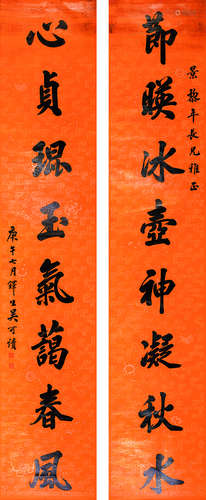 景年長兄雅正
節暎冰壺神凝秋水
心貞琨玉氣藹春風
庚午七月吳可讀